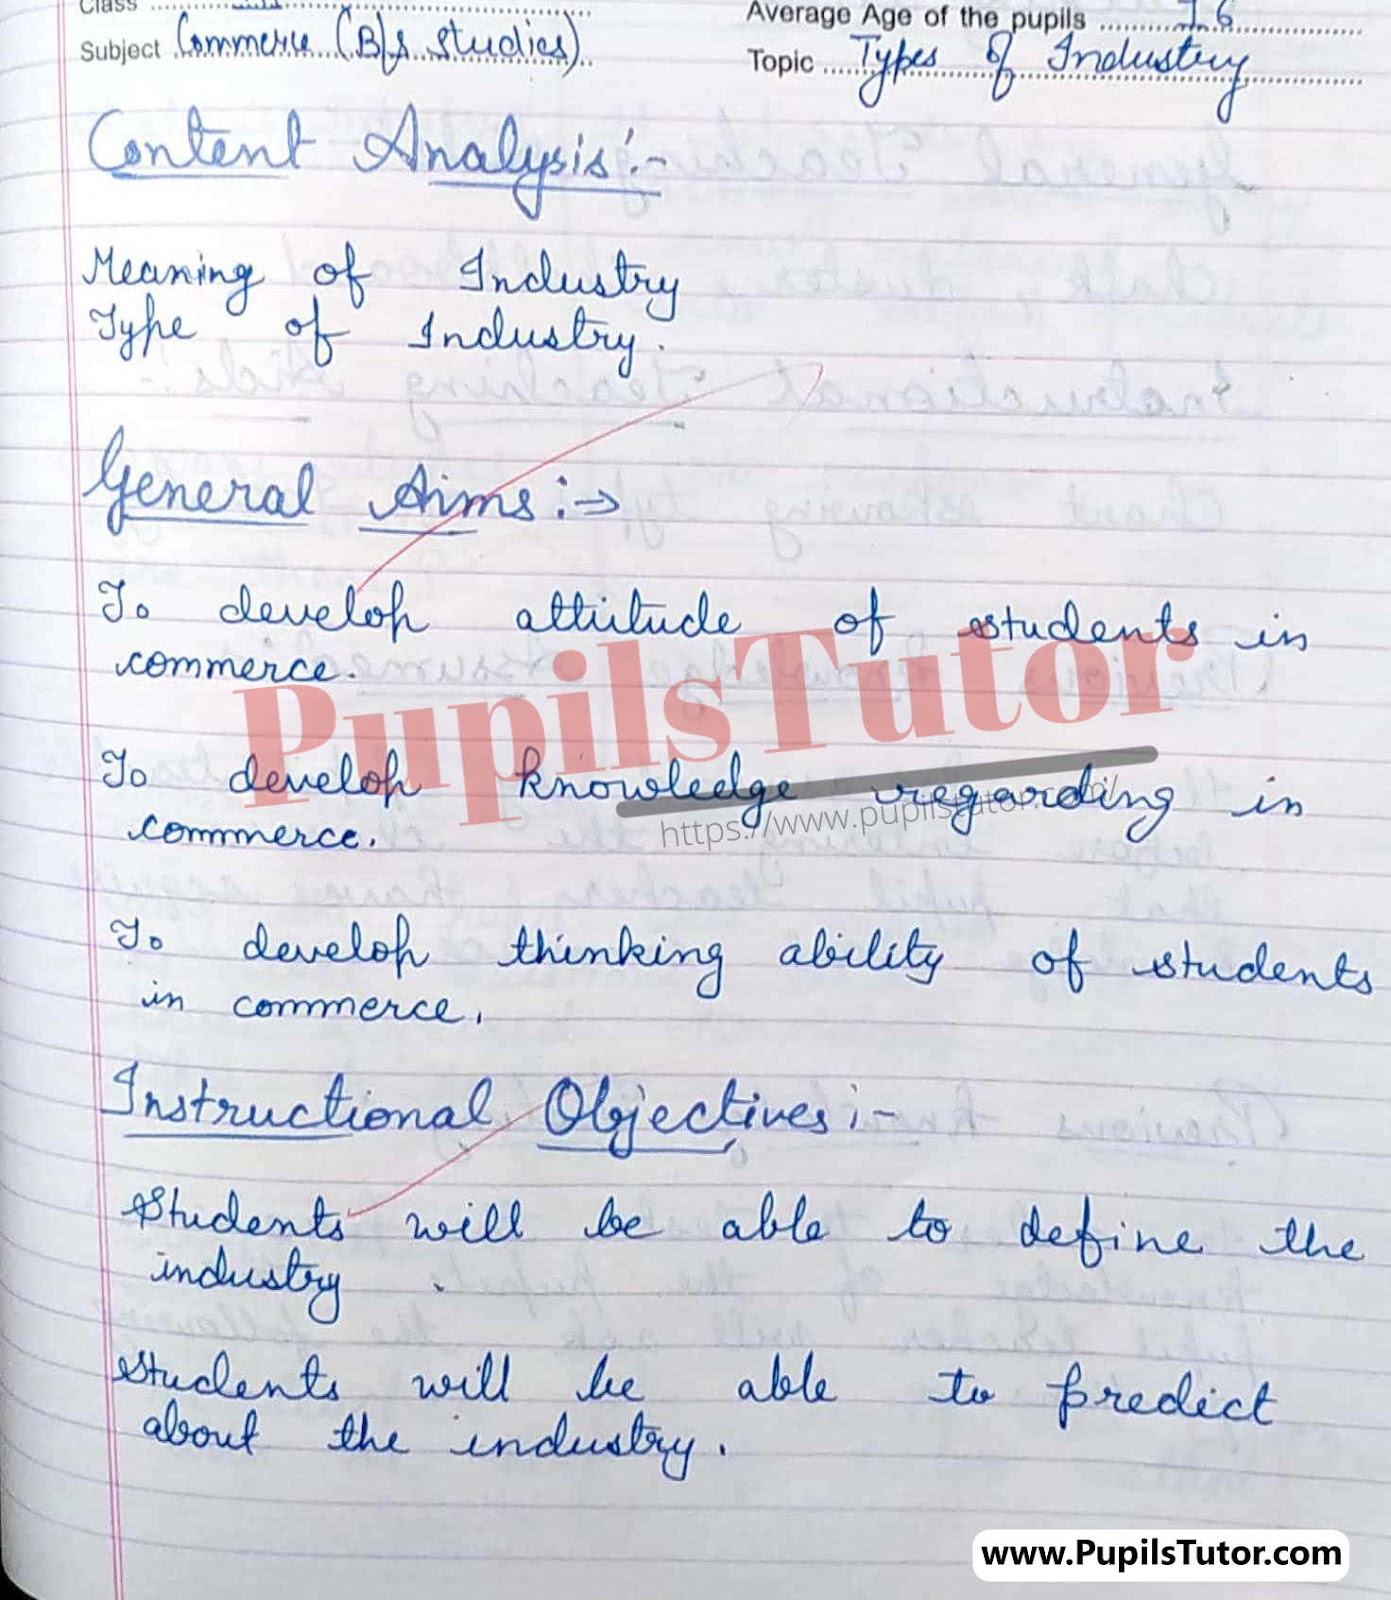 Class
Average Age of the pupils 16
Subject Commerce (B/s studies)
Topic Types of Industry
Content Analysis:-
Meaning of Industry
Type of Industry.
General Aims:→
To develop attitude of students in
commerce.
PupilsTutor
To develop knowledge regarding in
commerce.
https://www.pupilstutor.com/
To develop thinking ability of students
in commerce.
Instructional Objectives:-
Students will be able to define the
industry.
Students will be able to predict
about the industry.
www.PupilsTutor.com